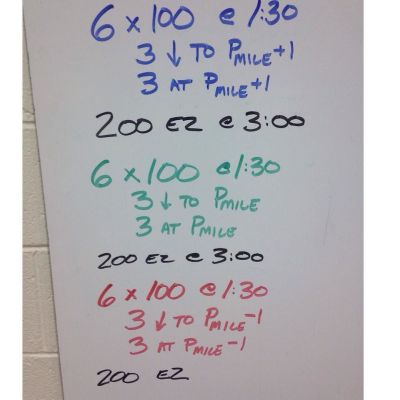 6 x 100 @ 1:30
3 ↓ TO PMILE+1
3 AT PMILE+1
200 EZ @ 3:00
6 x 100 @ 1:30
3 ↓ TO PMILE
3 AT PMILE
200 EZ @ 3:00
6 x 100 @ 1:30
3 ↓ TO PMILE-1
3 AT PMILE-1
200 EZ